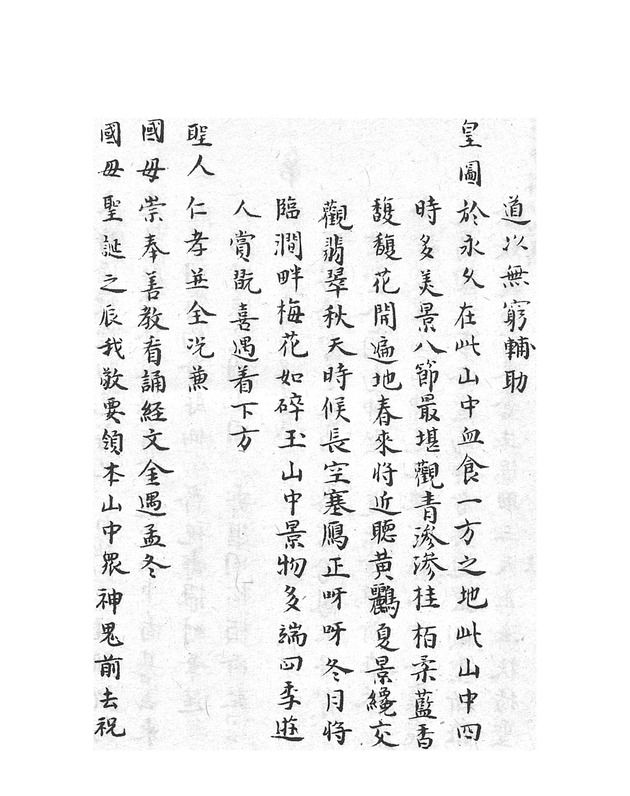 道以無窮輔助
皇圖於永久在此山中血食一方之地此山中四
時多美景八節最堪觀青滲滲桂柏柔藍香
馥馥花開遍地春來將近聽黃鸝夏景纔交
觀翡翠秋天時候長空塞鴈正呀呀冬月將
臨澗畔梅花如碎玉山中景物多端四季遊
人賞翫喜遇着下方
聖人仁孝並全况兼
國母崇奉善教看誦経文金遇孟冬
國母聖誕之辰我敬要領本山中眾神鬼前去祝